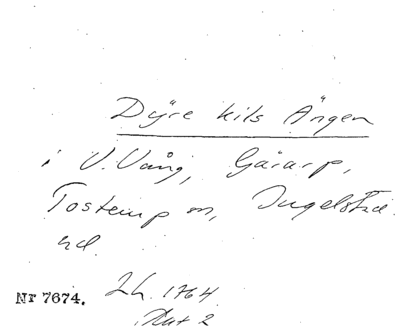 Dÿre kils Ängen
i V. Vång, Gärarp,
Tosterup sn, Ingelstad
hd.
Nr 7674. Lh. 1764
Akt 2